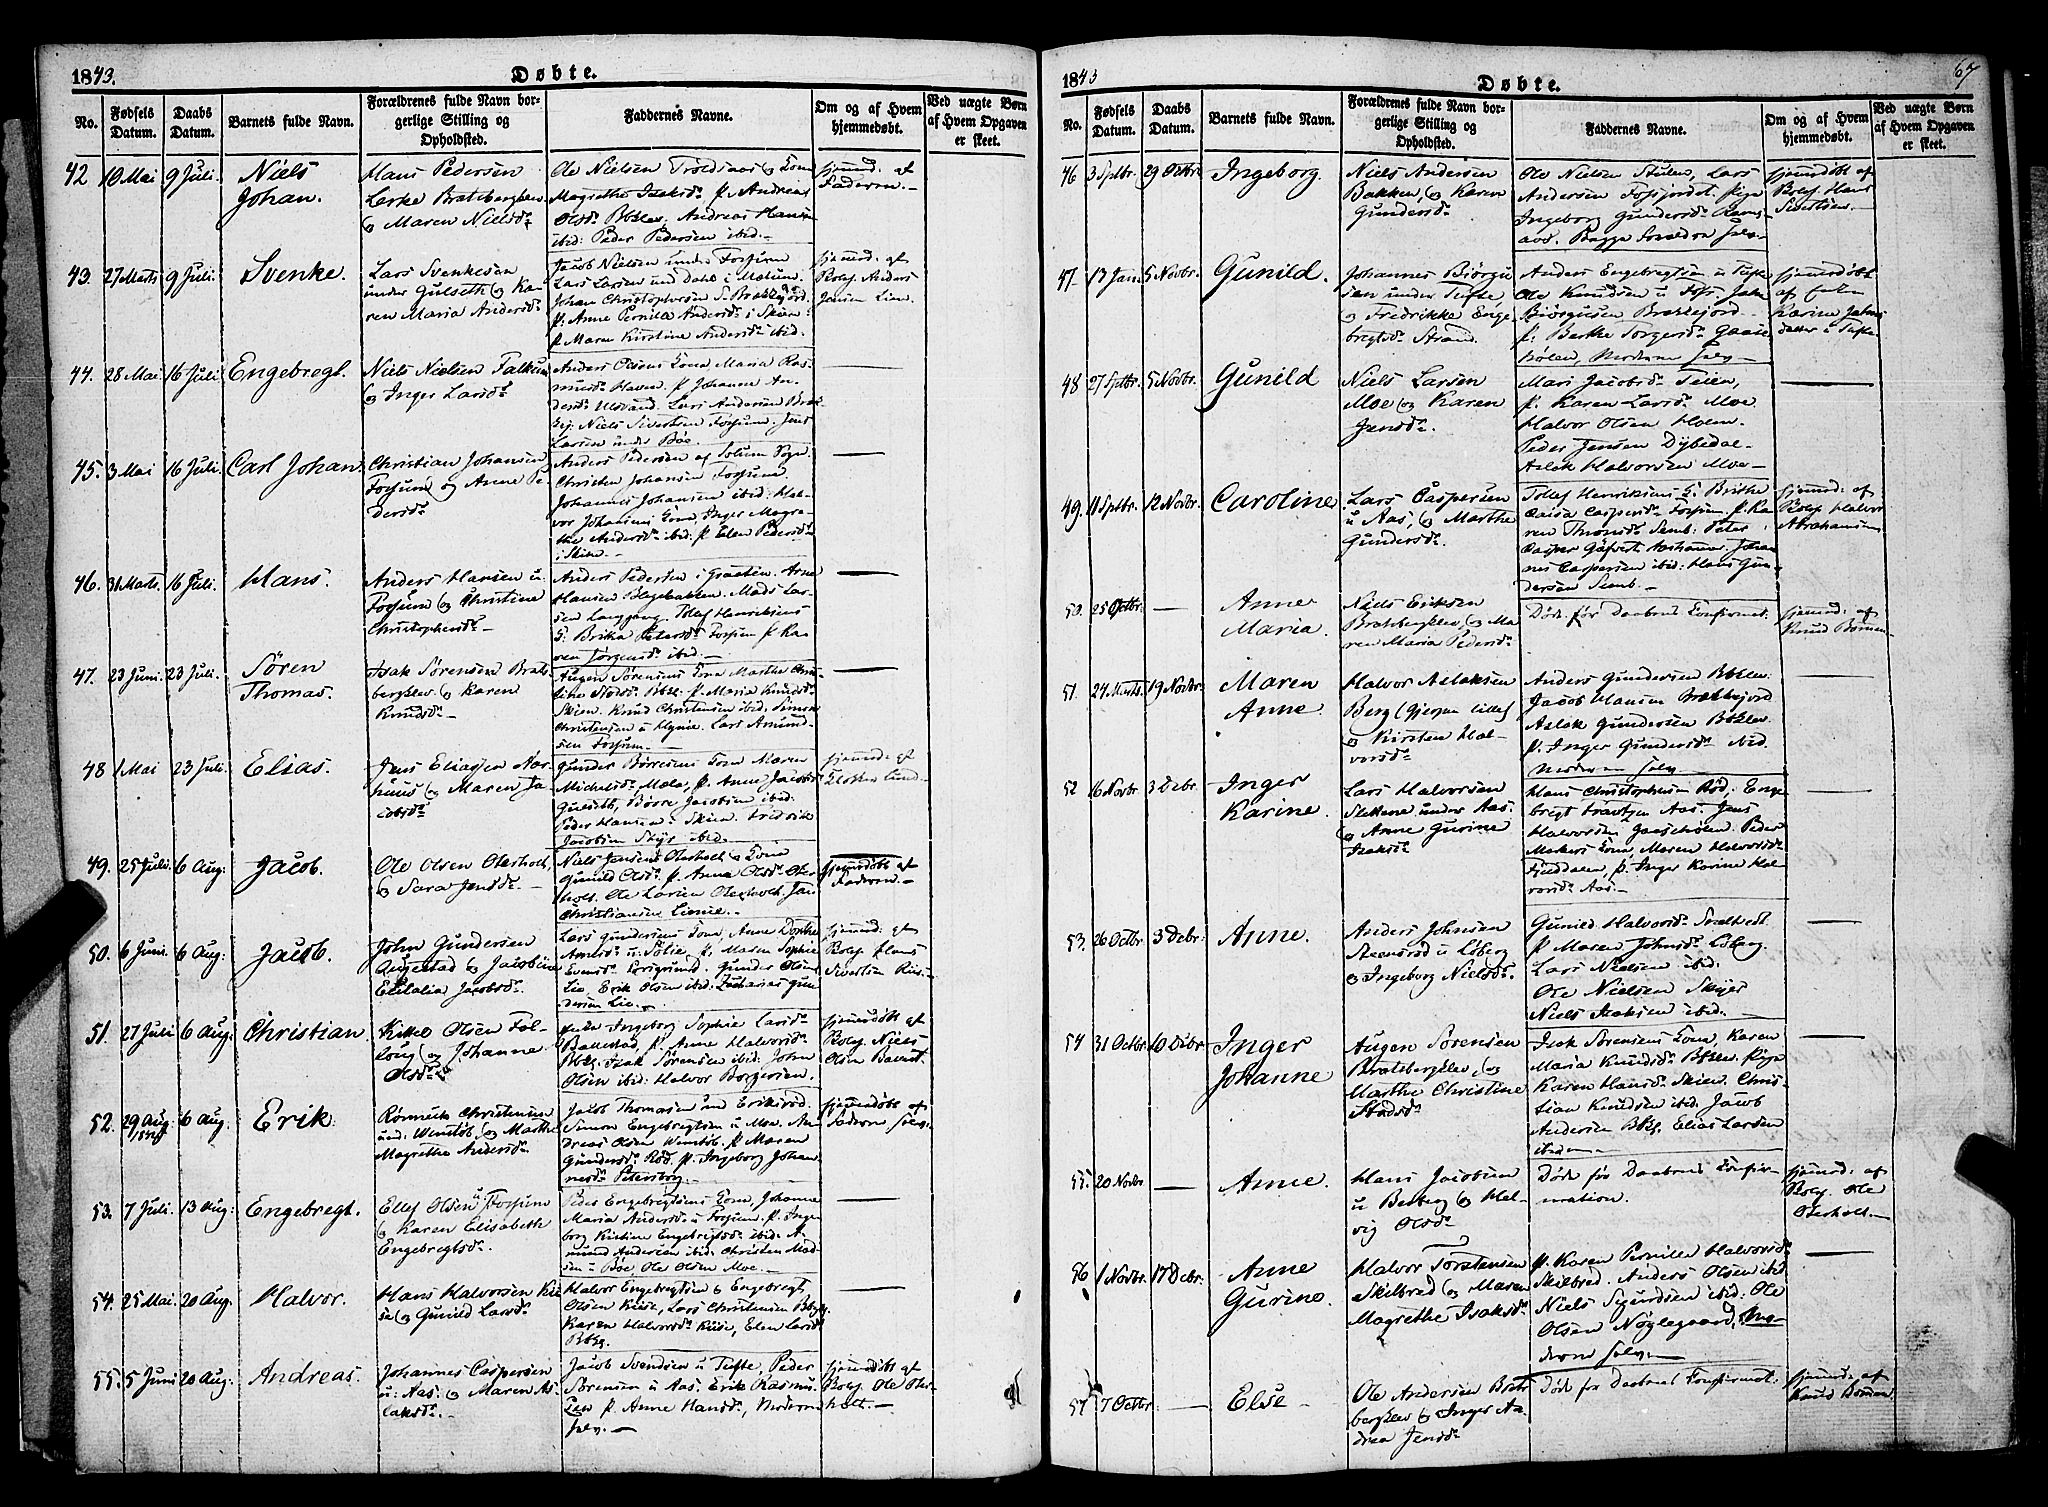 1843.
Døbte.
No.
Fødsels Datum.
Daabs Datum.
Barnets fulde Navn.
Forældrenes fulde Navn bor-
gerlige Stilling og
Opholdsted.
Faddernes Navne.
Om og af Hvem
hjemmedøbt.
Ved uægte Børn
af Hvem Opgaven
er skeet.
42 19 Mai 9 Juli. Niels
Johan.
Hans Pedersen
Lerke Bratsbergklev
og Maren Nielsdr
Ole Nielsen
Magrethe Isaksdr p. Andreas
Olsdr Bbklev. Andreas Hansen
ibid: Peder Pedersen ibid.
hjemmd. af
Faderen.
43. 27 Marts 9 Juli. Svenke.
Lars Svenkesen
under Gulseth og Ka-
ren Maria Andersdr
Jacob Nielsen under Fossum
Lars Larsen und Dahl i Melum.
Johan Christophersen S. Brekkejord.
p. Anne Pernille Andersdr i Skien
p. Maren Kirstine Andersdr ibid.
hjemmd: af
Rolej Anders
Jensen Lien.
44. 28 Mai 16 Juli. Engebregt.
Niels Nielsen Falkum
og Inger Larsdr
Anders Olsens Kone Maria Ras-
musdr Haven. p. Johanne An-
dersdr Ulvsand. Lars Andersen Brek-
kej. Niels Sivertsen Fossum. Jens
Larsen under Böe.
45. 3 Mai 16 Juli. Carl Johan.
Christian Johansen
Fossum og Anne Pe-
dersdr
Anders Pedersen af Solum Sogn.
Christen Johansen Fossum
Johannes Johansen ibid: Hal-
vor Johansens Kone, Inger Magre-
the Andersdr ibid. p. Elen Pedersdr
i Skien.
46. 31 Marts 16 Juli. Hans.
Anders Hansen u.
Fossum og Christine
Christophersdr
Anders Pedersen i Graaten. Arne
Hansen Blegebakken. Mads Lar-
sen Langgang. Tollef Henriksens
K. Brita Petersdr Fossum p. Ka-
ren Jörgensdr ibid.
47. 23 Juni. 23 Juli. Sören
Thomas.
Isak Sörensen Brats-
bergklev og Karen
Knudsdr
Augen Sörensens Kone Marthe Chri-
stine Stadsdr Bbkl. p. Maria Knudsdr
Skien. Knud Christensen ibid. Simon
Christensen u Myrene. Lars Amund-
sen Fossum.
48 1 Mai 23 Juli. Elias.
Jens Eliasen Aar-
huus og Maren Ja-
cobsdr
Gunder Börresens Kone Maren
Michelsdr Mæla, p. Anne Jacobsdr
Gulseth, Börre Jacobsen ibid.
Peder Hansen i Skien. Fredrik
Jacobsen Skyer ibid.
hjemmd: af
Klokker Lund.
49. 25 Juli. 6 Aug: Jacob.
Ole Olsen Oterholt,
og Sara Jensdr
Niels Jensens Oterholt og Kone
Gunild Olsdr p. Anne Olsdr Oter-
holt. Ole Larsen Oterholt. Jan
Christiansen Lienie.
hjemmdöbt af
Faderen.
50. 6 Juni. 6 Aug: Jacob.
John Gundersen
Augestad og Jacobine
Elilalia Jacobsdr
Lars Gundersens Kone, Anne Dophie
Arnesdr u: Sölie, p. Maren Sophie
Evensdr Porsgrund. Gunder Olsen
Lie. Erik Olsen ibid. Zacharias Gun-
dersen Lie.
hjemmd: af
Rolej Hans
Sivertsen Riis.
51. 27 Juli 6 Aug: Christian.
Kittel Olsen Fol-
laug og Johanne
Olsdr
Enke Ingeborg Sophie Larsdr
Ballestad, p. Anne Halvorsdr
Bbkl. Isak Sörensen ibid. John
Olsen ibid: Halvor Borgersen.
hjemmdöbt af
Rolej Niels
Olsen Bakent.
52. 29 Aug: 1842 6 Aug. Erik.
Christensen
und. Wemstöb og Marthe
Magrethe Andersdr
Jacob Thomasen und Eriksröd.
Simon Engebregtsen u Moe. An-
dreas Olsen Wemstöb. p. Maren
Gundersdr Röd. p. Ingeborg Johan-
nesdr Petersborg.
hjemmdöbt af
Faderen selv.
53. 7 Juli. 13 Aug: Engebregt.
Ellef Olsen u Fossum
og Karen Elisabeth
Engebregtsdr
Peder Engebregtsens Kone, Johanne
Maria Andersdr u Fossum. p. Inge-
borg Kirstine Engebregtsdr ibid. A-
mund Andersen ibid: Christen Mad-
sen u Böe. Ole Olsen Moe.
54. 25 Mai. 20 Aug. Halvor.
Hans Halvorsen Kii-
se og Gunild Larsdr
Halvor Engebregtsen og Engebregt
Olsen Kiise, Lars Christensen Bbkl.
Karen Halvorsdr Kiise, Elen Larsdr
Bbkl.
55. 5 Juni 20 Aug: Andreas.
Johannes Caspersen
u: Aas. og Maren As-
laksdr
Jacob Svendsen u Tufte, Peder
Sörensen u Aas. Erik Rasmus-
sen p. Anne Hansdr, Moderen
selv.
hjemmdöbt af
Rolej Ole Oter-
holt.
1843
Døbte.
67
No.
Fødsels Datum.
Daabs Datum.
Barnets fulde Navn.
Forældrenes fulde Navn bor-
gerlige Stilling og
Opholdsted.
Faddernes Navne.
Om og af Hvem
hjemmedøbt.
Ved uægte Børn
af Hvem Opgaven
er skeet.
46 3 Sptbr. 29 Octbr. Ingeborg.
Niels Andersen
Bakken, og Karen
Gundersdr
Ole Nielsen Stulen, Lars
Andersen Fossjordet Pige
Ingeborg Gundersdr Rams-
aas. Begge Forældre selv.
hjemmdöbt af
Rolej Hans
Sivertsen.
47. 13 Jan 5 Novbr. Gunild.
Johannes Biörgu-
sen under Tufte
og Fredrikke Enge-
bregtsdr Strand.
Anders Engebregtsen u Tufte
Ole Knudsen u Foss. John
Biörgusen Brekkejord.
p. Berthe Torgersdr Gaase-
hölen, Moderen selv.
hjemmdöbt
af
Karine Johns-
datter u Tufte.
48 27 Sptbr. 5 Novbr. Gunild
Niels Larsen
Moe og Karen
Jensdr.
Mari Jacobsdr Teien,
p. Karen Larsdr Moe.
Halvor Olsen Holm.
Peder Jensen Dybedal.
Aslak Halvorsen Moe.
49. 11 Sptbr. 12 Novbr. Caroline
Lars Caspersen
u Aas, og Marthe
Gundersdr.
Tollef Henriksens K. Britha
Caisa Caspersdr Fossum p. Ka-
ren Thomsdr Semb. Peter
Casper Johan-
nes Caspersen ibid: Hans Gun-
dersen Semb.
hjemmd: af
Rolej Halvor
Abrahamsen
50. 25 Octbr. Anne
Maria.
Niels Eriksen
Bratsbergklev, og Ma-
ren Maria Pedersdr
Döde för Daabens Confirmat.
hjemmd: af
Knud Bomen.
51. 24 Marts. 19 Novbr: Maren
Anne.
Halvor Aslaksen
Berg (Gjerpen lille)
og Kirsten Hal-
vorsdr
Anders Gundersen Bbklev.
Jacob Hansen Brekkejord
Aslak Gundersen Bbklev.
p. Inger Gundersdr ibid.
Moderen selv.
52 16 Novbr. 3 Debr. Inger
Karine.
Lars Halvorsen
Slettene under Aas.
og Anne Gurine
Isaksdr
Hans Christophersen Röd, Enge-
bregt Aas. Jens
Halvorsen Gaasehölen. Peder
Kone Maren Halvorsdr
Fjeddalen, p. Inger Karine Hal-
vorsdr Aas.
53. 26 Octbr. 3 Debr: Anne.
Anders Johnsen
Steensröd u Löberg
og Ingeborg Nielsdr
Gunild Halvorsdr
p. Maren Johnsdr Löberg.
Lars Nielsen ibid.
Ole Nielsen Skyer
Niels Isaksen ibid.
54 31 Octbr 10 Debr. Inger
Johanne
Augen Sörensen
Bratsbergklev, og
Marthe Christine
Stadsdr
Isak Sörensens Kone, Karen
Maria Knudsdr Bbklev. Pige
Karen Hansdr Skien. Chris-
tian Knudsen ibid. Jacob
Andersen Bbkl. Elias Larsen
ibidem.
55. 20 Novbr Anne.
Hans Jacobsen
u Berberg og Hel-
vig Olsdr
Döde för Daabens Confir-
mation.
hjemmd: af
Rolej. Ole
Oterholt.
56 1 Novbr. 17 Debr: Anne
Gurine.
Halvor Torstensen
Skilbred og Maren
Magrethe Isaksdr
p. Karen Pernille Halvorsdr
Skilbred. Anders Olsen ibid
Niels Sigurdsen ibid: Ole
Olsen Nöglegaard, Mo-
deren selv.
57 7 Octbr. Else
Ole Andersen Brats-
bergklev og Inger An-
drea Jensdr
Döde för Daabens Confirmat.
hjemmd: af
Knud Bomen.